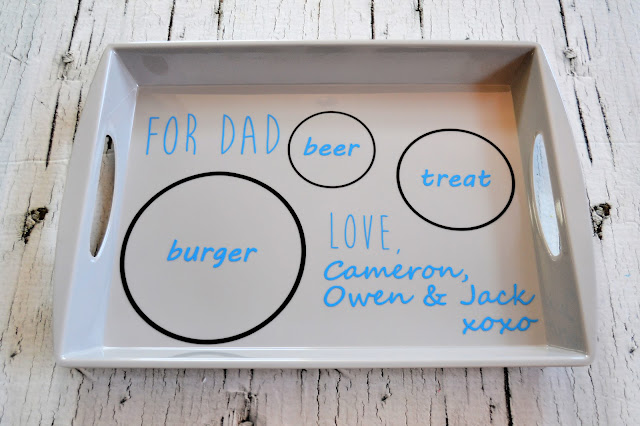 FOR DAD
beer
treat
burger
LOVE,
Cameron,
Owen & Jack
xoxo